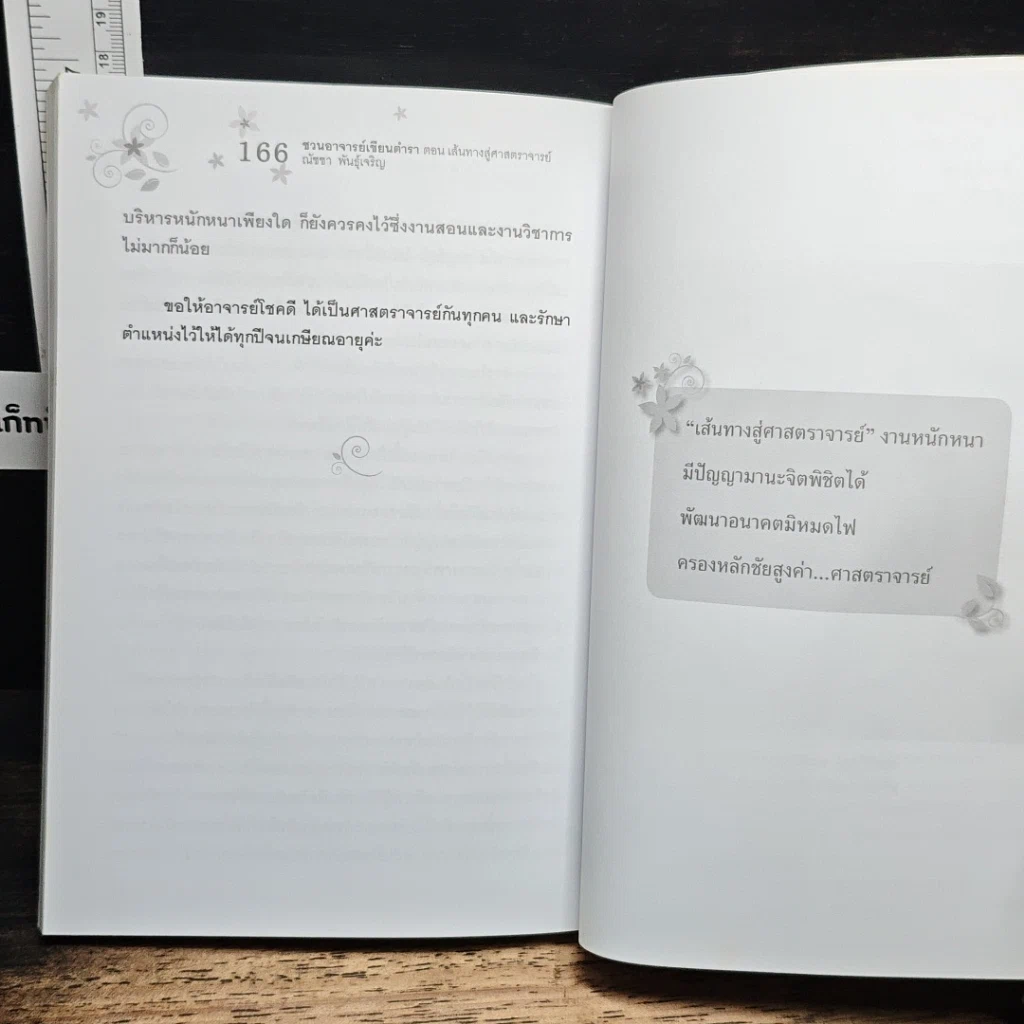 19
18
7
166
ชวนอาจารย์เขียนตำรา ตอน เส้นทางสู่ศาสตราจารย์
ณัชชา พันธุ์เจริญ
บริหารหนักหนาเพียงใด ก็ยังควรคงไว้ซึ่งงานสอนและงานวิชาการ
ไม่มากก็น้อย
ขอให้อาจารย์โชคดี ได้เป็นศาสตราจารย์กันทุกคน และรักษา
ตำแหน่งไว้ให้ได้ทุกปีจนเกษียณอายุค่ะ
“เส้นทางสู่ศาสตราจารย์” งานหนักหนา
มีปัญญามานะจิตพิชิตได้
พัฒนาอนาคตมิหมดไฟ
ครองหลักชัยสูงค่า...ศาสตราจารย์